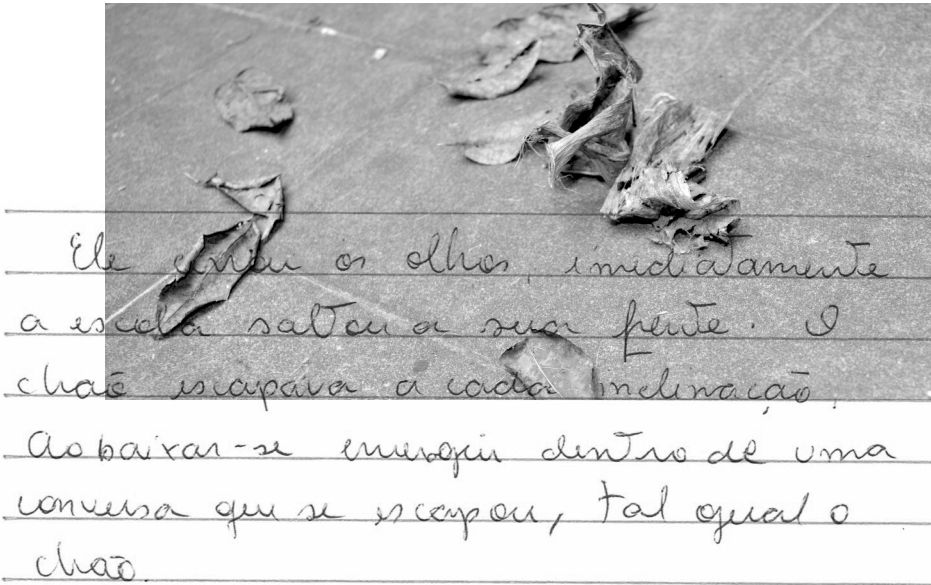 Ele os olhos, imediatamente
a escada saltou a sua frente. O
chão escapava a cada inclinação.
Ao baixar-se emergiu dentro de uma
conversa que se escapou, tal qual o
chão.